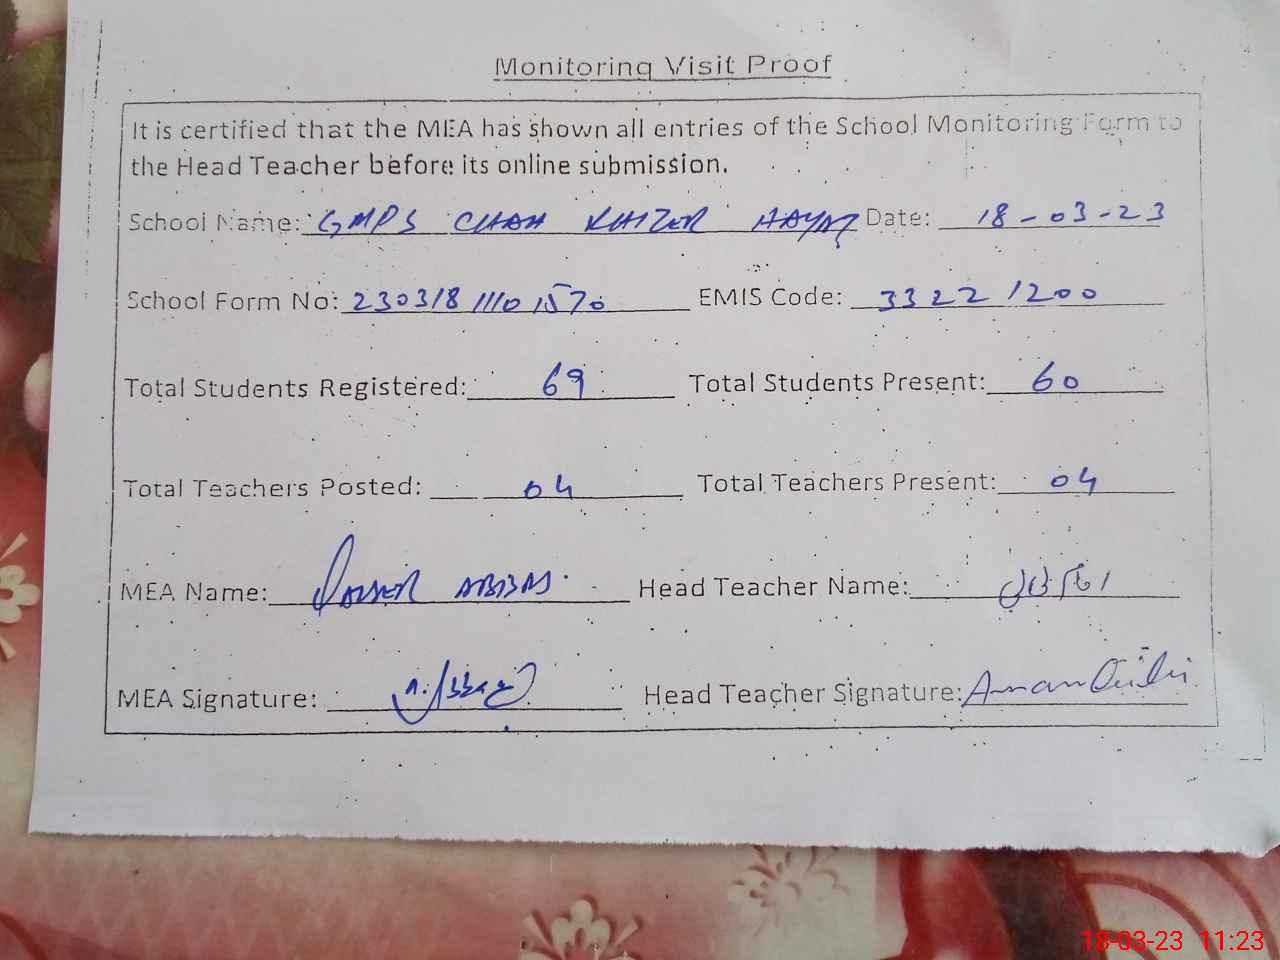 Monitoring Visit Proof
It is certified that the MEA has shown all entries of the School Monitoring Form to
the Head Teacher before its online submission.
School Name: GMPS CHAH KHIZER HAYAT Date: 18-03-23
School Form No: 230318 1110 1570 EMIS Code: 3322 1200
Total Students Registered: 69 Total Students Present: 60
Total Teachers Posted: 04 Total Teachers Present: 04
MEA Name: ABBAS Head Teacher Name:
MEA Signature: Head Teacher Signature: Aman
18-03-23 11:23